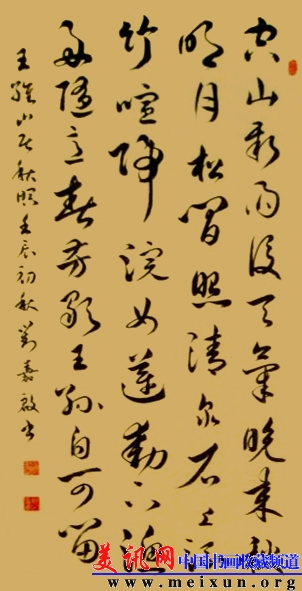 空山新雨後天氣晚來秋
明月松間照清泉石上流
竹喧歸浣女蓮動下漁
舟隨意春芳歇王孫自可留
王維山居秋暝壬辰初秋劉嘉啟書
美讯网 中国书画收藏频道
www.meixun.org